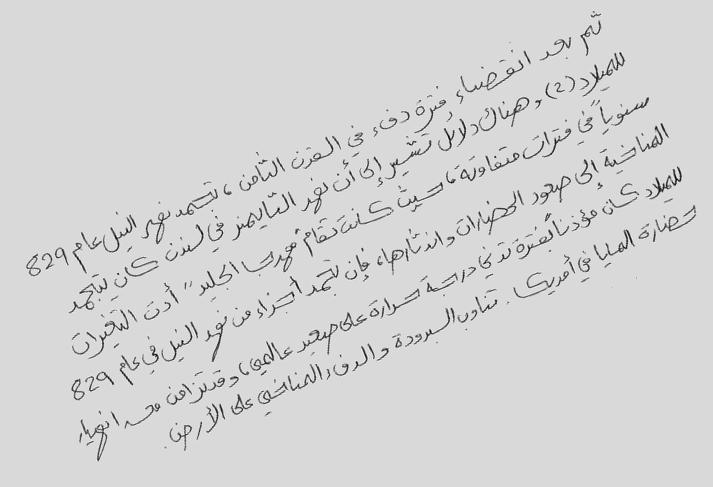 ثم بعد انقضاء فترة دفء في القرن الثامن، تجمد نهر النيل عام 829
للميلاد (2) وهناك دلائل تشير إلى أن نهر التايمز في لندن كان يتجمد
سنوياً في فترات متفاوتة، حيث كانت تقام "مهرجا الجليد" أدت التغيرات
المناخية إلى صعود الحضارات واندثارها، فإن تجمد أجزاء من نهر النيل في عام 829
للميلاد كان مؤذناً لفترة تدني درجة حرارة على صعيد عالمي، وقد تزامن مع انهيار
حضارة المايا في أمريكا. تناوب البرودة والدفء المناخي على الأرض.